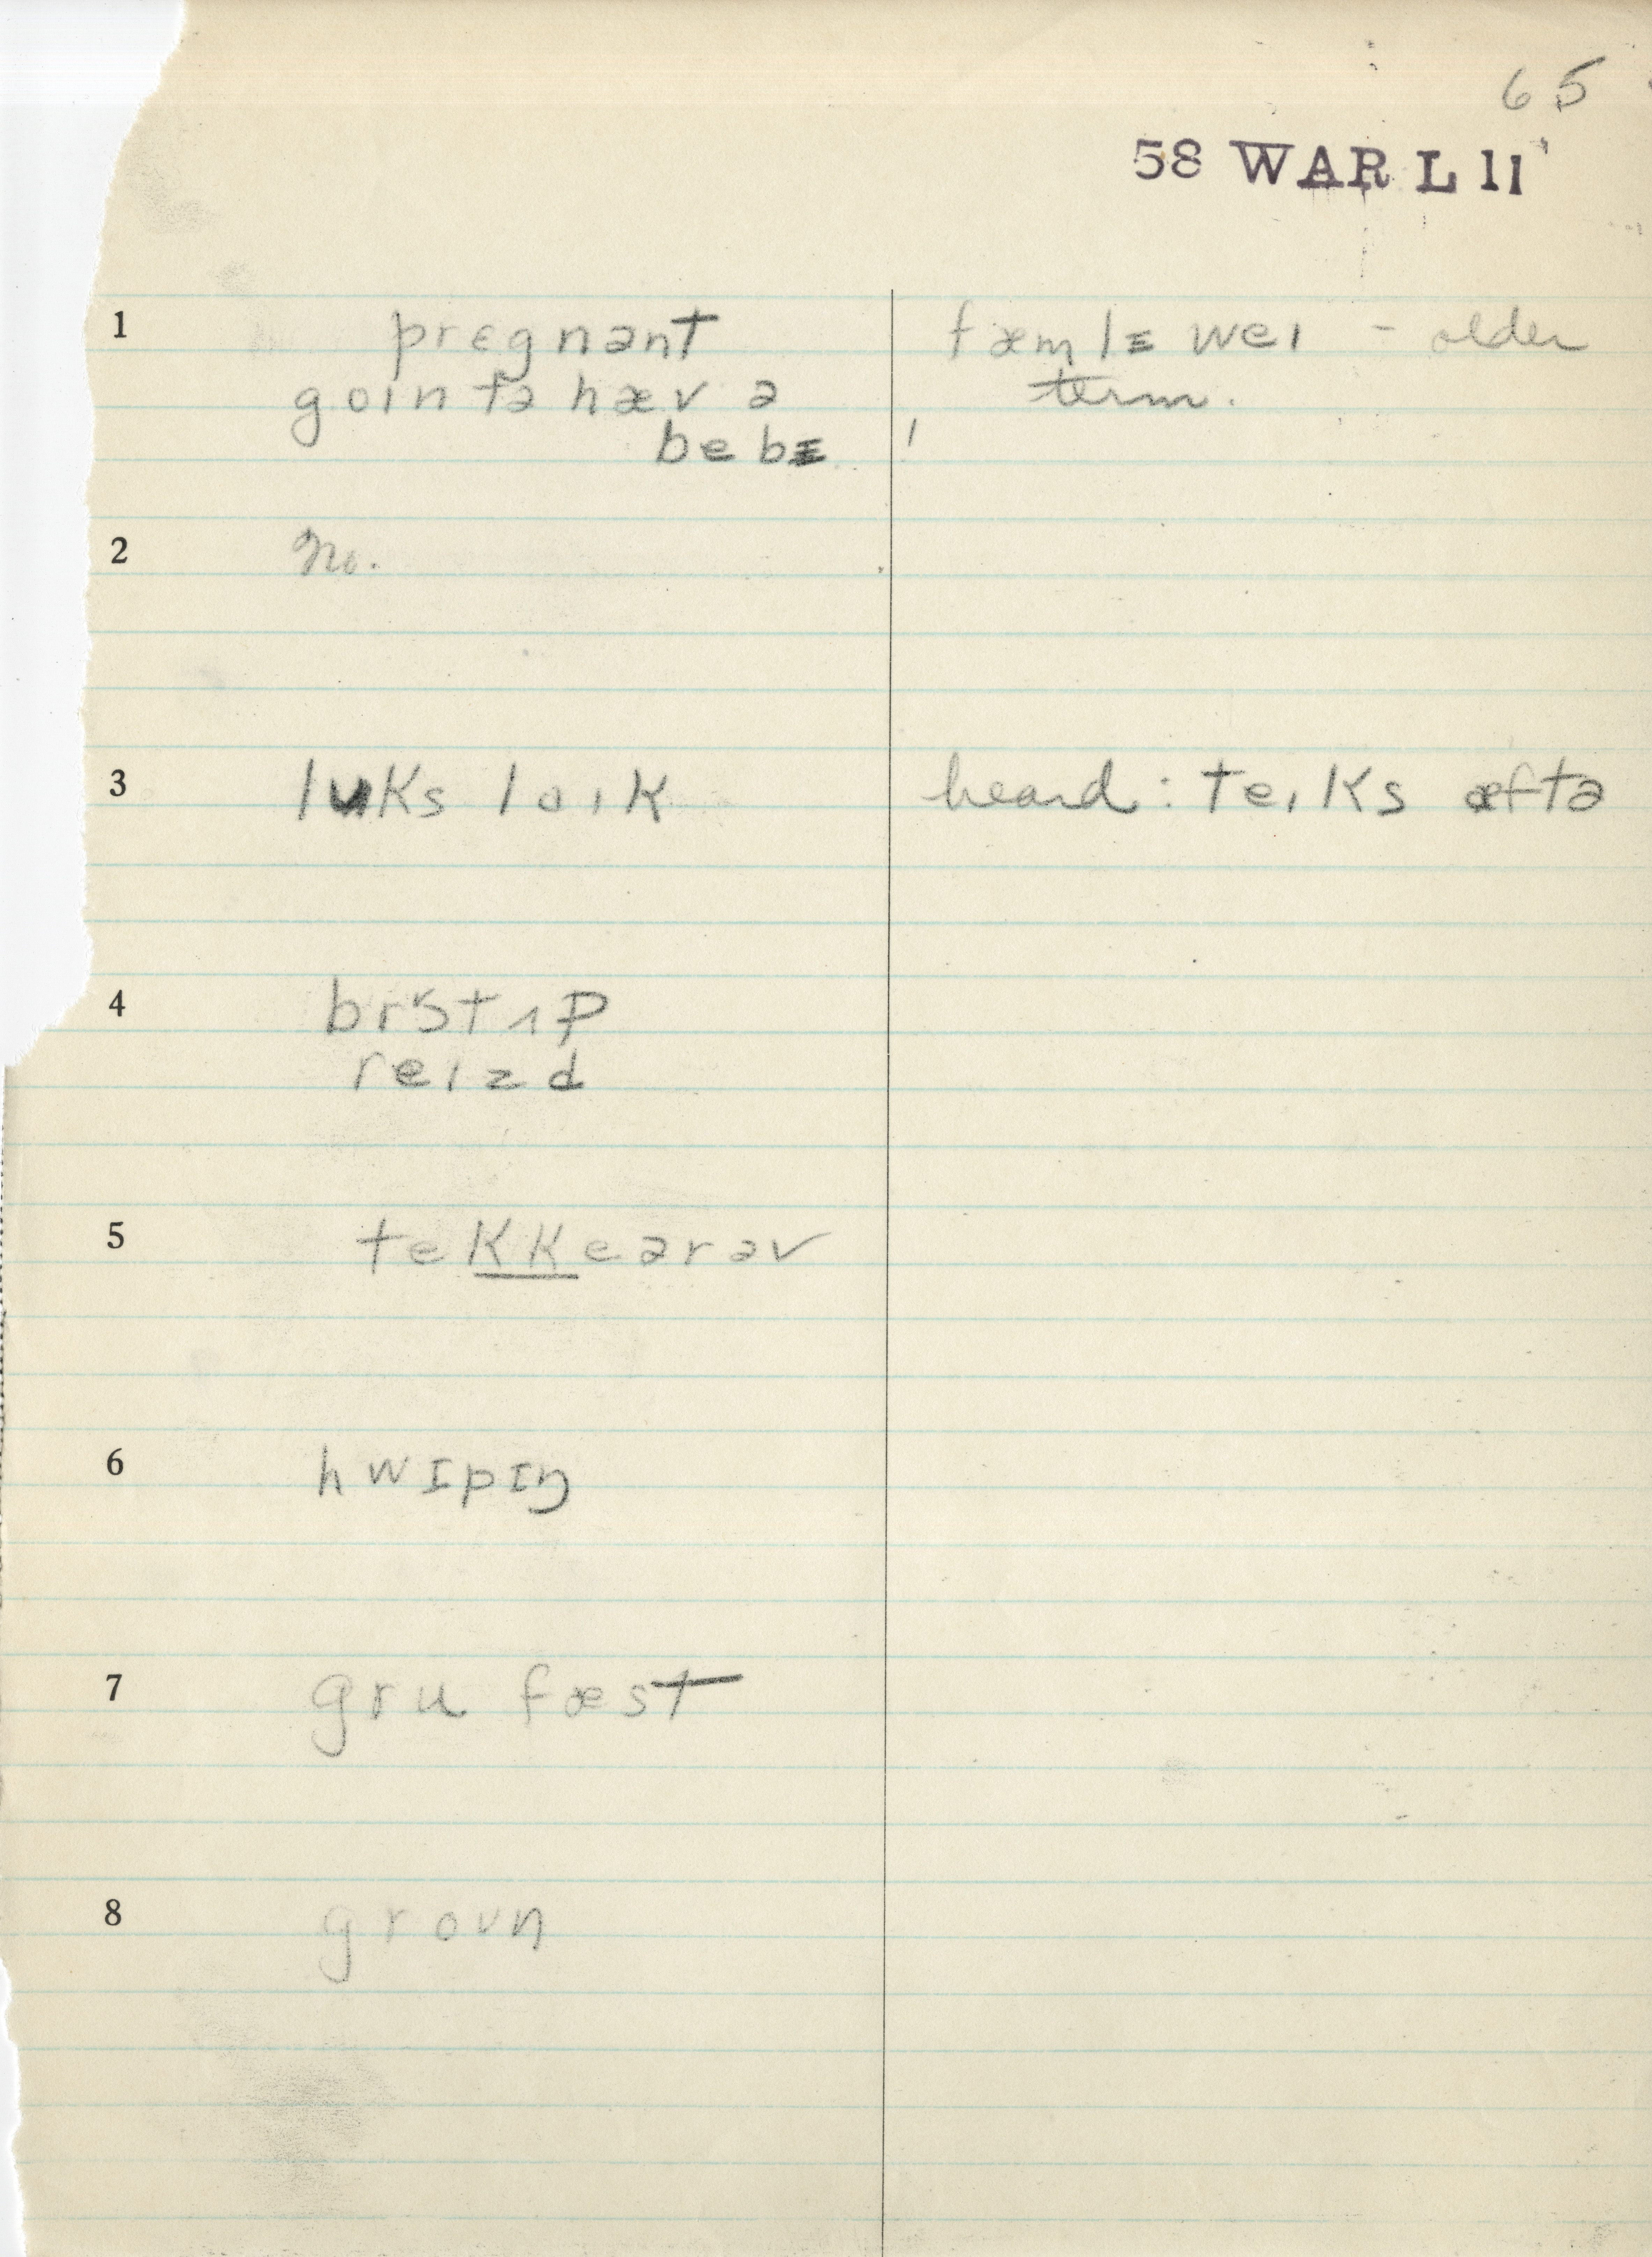 65
58 WAR L 11
1 pregnənt fæmlɪ weɪ - older
goɪn tə hæv ə term.
bebɪ
2 No.
3 lʊks laɪk heard: teɪks æftə
4 brɔt ʌp
reɪzd
5 tekkeərəv
6 hwɪpɪŋ
7 gru fæst
8 groʊn